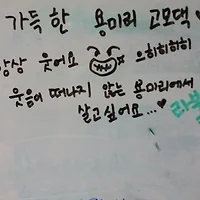 가득한 용미리 고모댁♥
항상 웃어요 으히히히히
웃음이 떠나지 않는 용미리에서
살고싶어요...♥